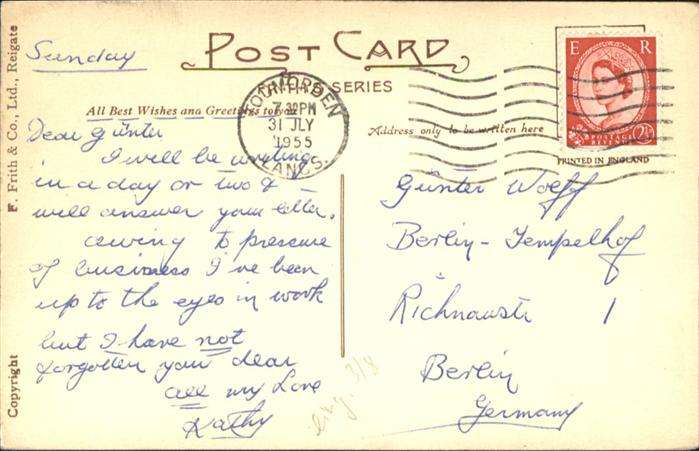 Sunday
POST CARD
FRITH'S SERIES
All Best Wishes and Greetings to you
TODMORDEN
7 30 PM
31 JLY
1955
LANCS.
E R
POSTAGE
REVENUE
2½
Address only to be written here
PRINTED IN ENGLAND
Dear Günter
I will be writing
in a day or two &
will answer your letter.
owing to pressure
of business I've been
up to the eyes in work
but I have not
forgotten you dear
all my Love
Kathy
Günter Wolff
Berlin - Tempelhof
1
Berlin
Germany
3/8
F. Frith & Co., Ltd., Reigate
Copyright